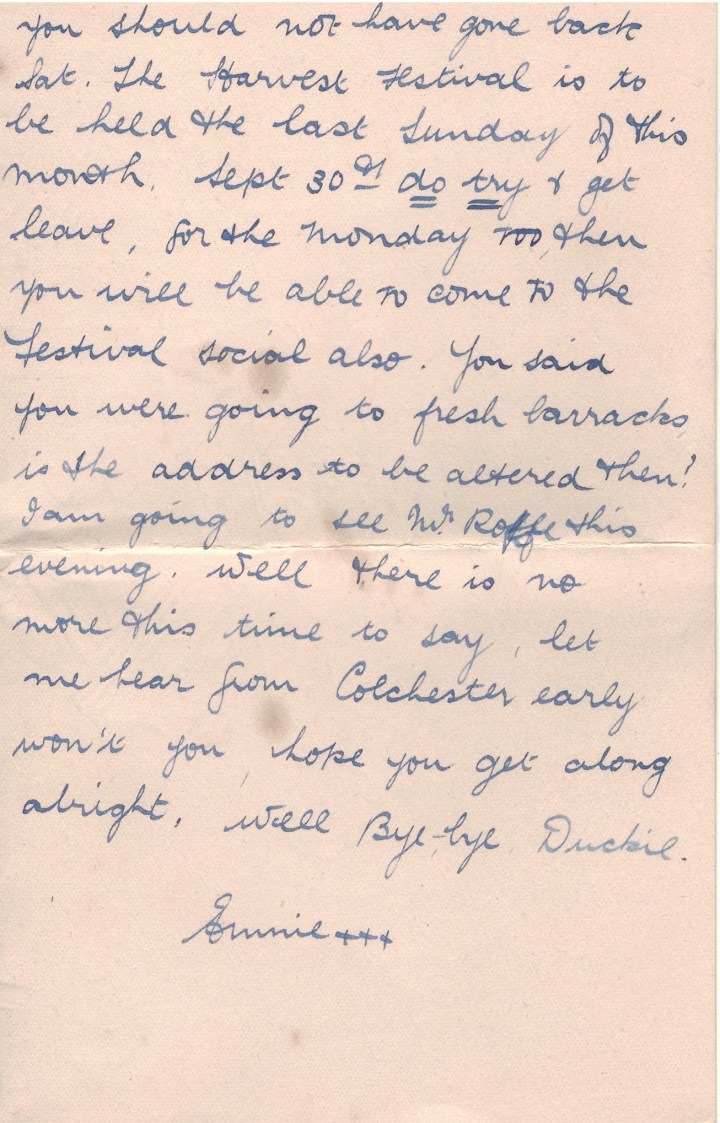 you should not have gone back
Sat. The Harvest Festival is to
be held the last Sunday of this
month. Sept 30th do try & get
leave, for the Monday too, then
you will be able to come to the
festival social also. You said
you were going to fresh barracks,
is the address to be altered then?
I am going to see Mr. Roffe this
evening. Well there is no
more this time to say, let
me hear from Colchester early
won't you, hope you get along
alright. Well Bye-bye Duckie.
Emmie +++